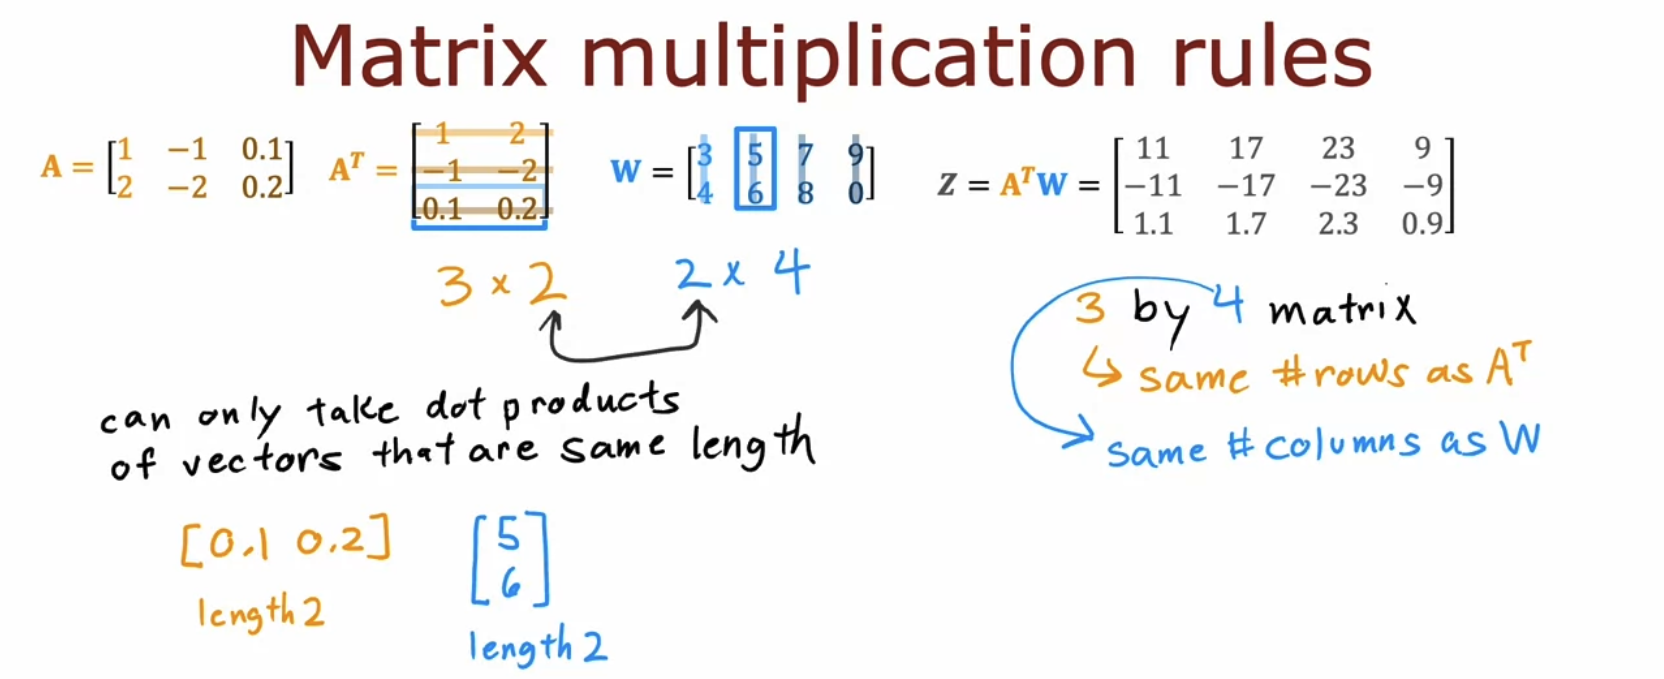 Matrix multiplication rules
A = [1 −1 0.1
2 −2 0.2]
Aᵀ = [1 2
−1 −2
0.1 0.2]
W = [3 5 7 9
4 6 8 0]
Z = AᵀW = [11 17 23 9
−11 −17 −23 −9
1.1 1.7 2.3 0.9]
3 × 2
2 × 4
can only take dot products
of vectors that are same length
[0.1 0.2]
length 2
[5
6]
length 2
3 by 4 matrix
↳ same # rows as Aᵀ
same # columns as W